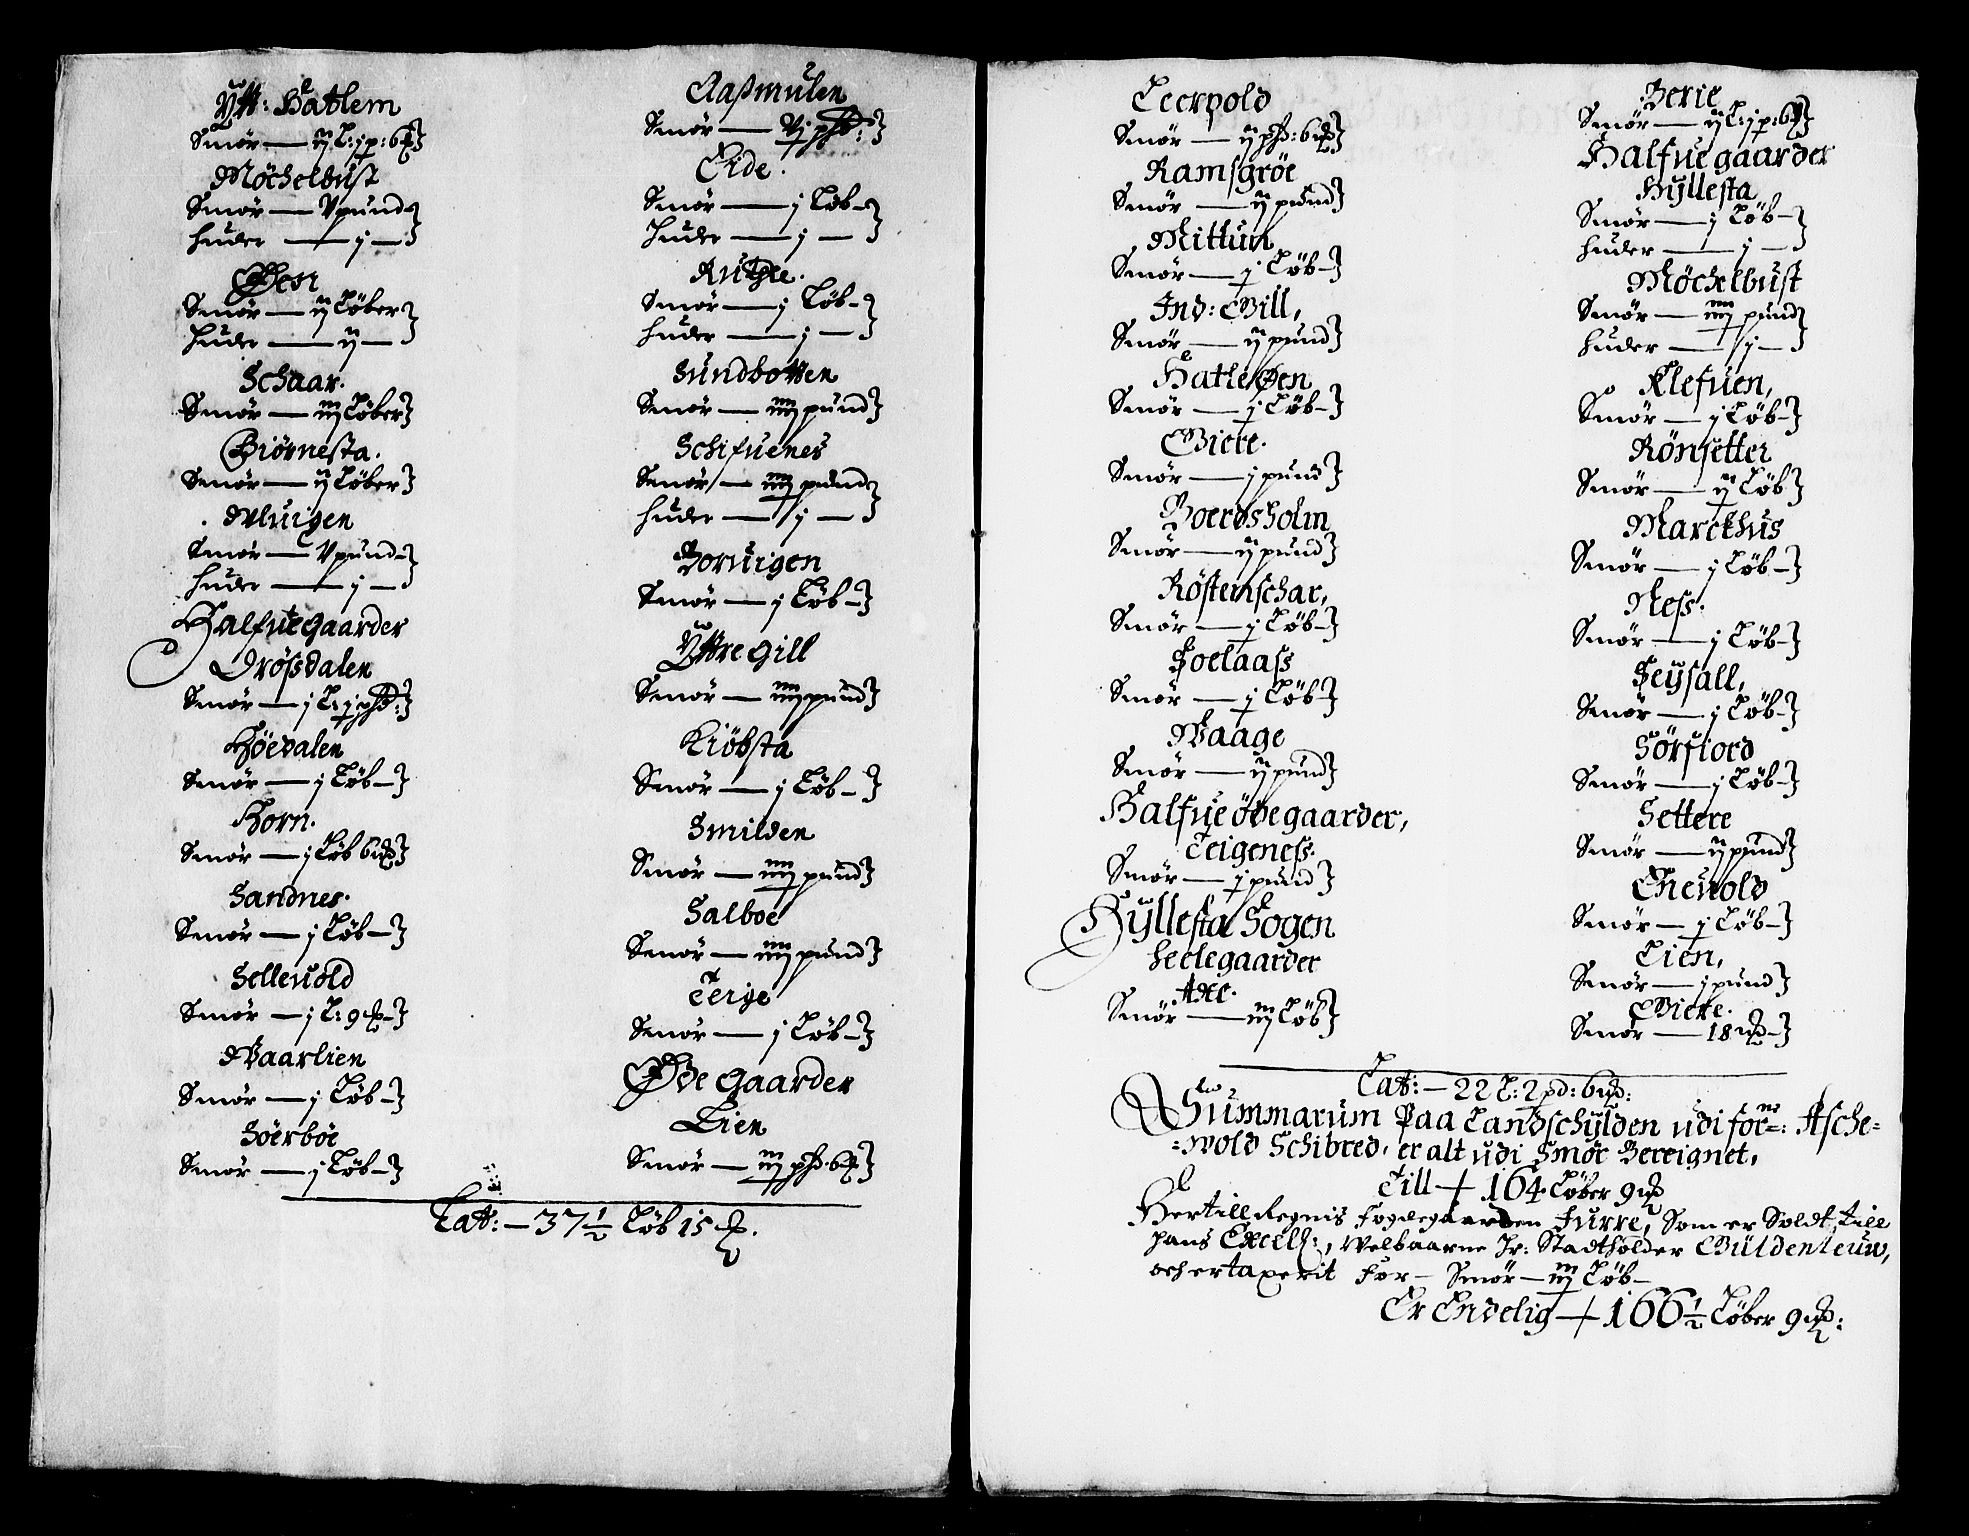 Ytt: Hatlem
Smör — ij L: j p: 6 ℔
Möchelbust
Smör — V pund
Huder — j —
Øen
Smör — ij Löber
Huder — ij —
Schaar.
Smör — iij Löber
Biörnesta.
Smör — ij Löber
Vluigen
Smör — V pund
Huder — j —
Halfue gaarder
Drössdalen
Smör — j L: j pd:
Höedalen
Smör — j Löb —
Horn.
Smör — j Löb 6 ℔
Sandnes.
Smör — j Löb —
Selleuold
Smör — j L: 9 ℔ —
Waarlien
Smör — j Löb —
Söerböe
Smör — j Löb —
Aaßmulen
Smör — Vj pd:
Eide.
Smör — j Löb —
Huder — j —
Rutle.
Smör — j Löb —
Huder — j —
Sundbotten
Smör — iiij pund
Schifuenes
Smör — iiij pund
Huder — j —
Boruigen
Smör — j Löb —
Yttre Gill
Smör — iiij pund
Kiöbsta
Smör — j Löb —
Smilden
Smör — iiij pund
Salboe
Smör — iiij pund
Terije
Smör — j Löb —
Øde Gaarder
Lien
Smör — iij pd. 6 ℔
Lat: — 37 1/2 Löb 15 ℔.
Leeruold
Smör — ij pd: 6 ℔
Ramsgröe
Smör — ij pund
Mittun
Smör — j Löb —
Ind: Gill,
Smör — ij pund
Hatle Øen
Smör — j Löb —
Giere.
Smör — j pund
Boerdsholm
Smör — ij pund
Röstenschar,
Smör — j Löb —
Soelaass
Smör — j Löb
Waage
Smör — ij pund
Halfue öde gaarder,
Teigeness.
Smör — j pund
Hyllesta Sogen
Heelegaarder
Axe.
Smör — iij Löb
Berie
Smör — ij L: j p: 6 ℔
Halfue gaarder
Hyllesta
Smör — j Löb —
Huder — j —
Möchelbust
Smör — iiij pund
Huder — j —
Klefuen,
Smör — j Löb —
Rönsetter
Smör — ij Löb
Marckhus
Smör — j Löb —
Ness.
Smör — j Löb —
Seysall,
Smör — j Löb —
Sörfiord
Smör — j Löb —
Settere
Smör — ij pund
Eneuold
Smör — j Löb —
Lien,
Smör — j pund
Giere.
Smör — 18 ℔ —
Lat: — 22 L: 2 pd: 6 ℔:
Summarum Paa Landschylden udi förne: Asche-
-wold Schibred, er alt udi Smör Bereignet,
Till — 164 Löber 9 ℔
Hertill Regnis Fogdegaarden Furre, Som er Soldt, till
Hans Excell:, Welbaarne Hr: Stadtholder Güldenleuw,
och ertaxerit for — Smör — iij Löb —
Er Endelig — 166 1/2 Löber 9 ℔: